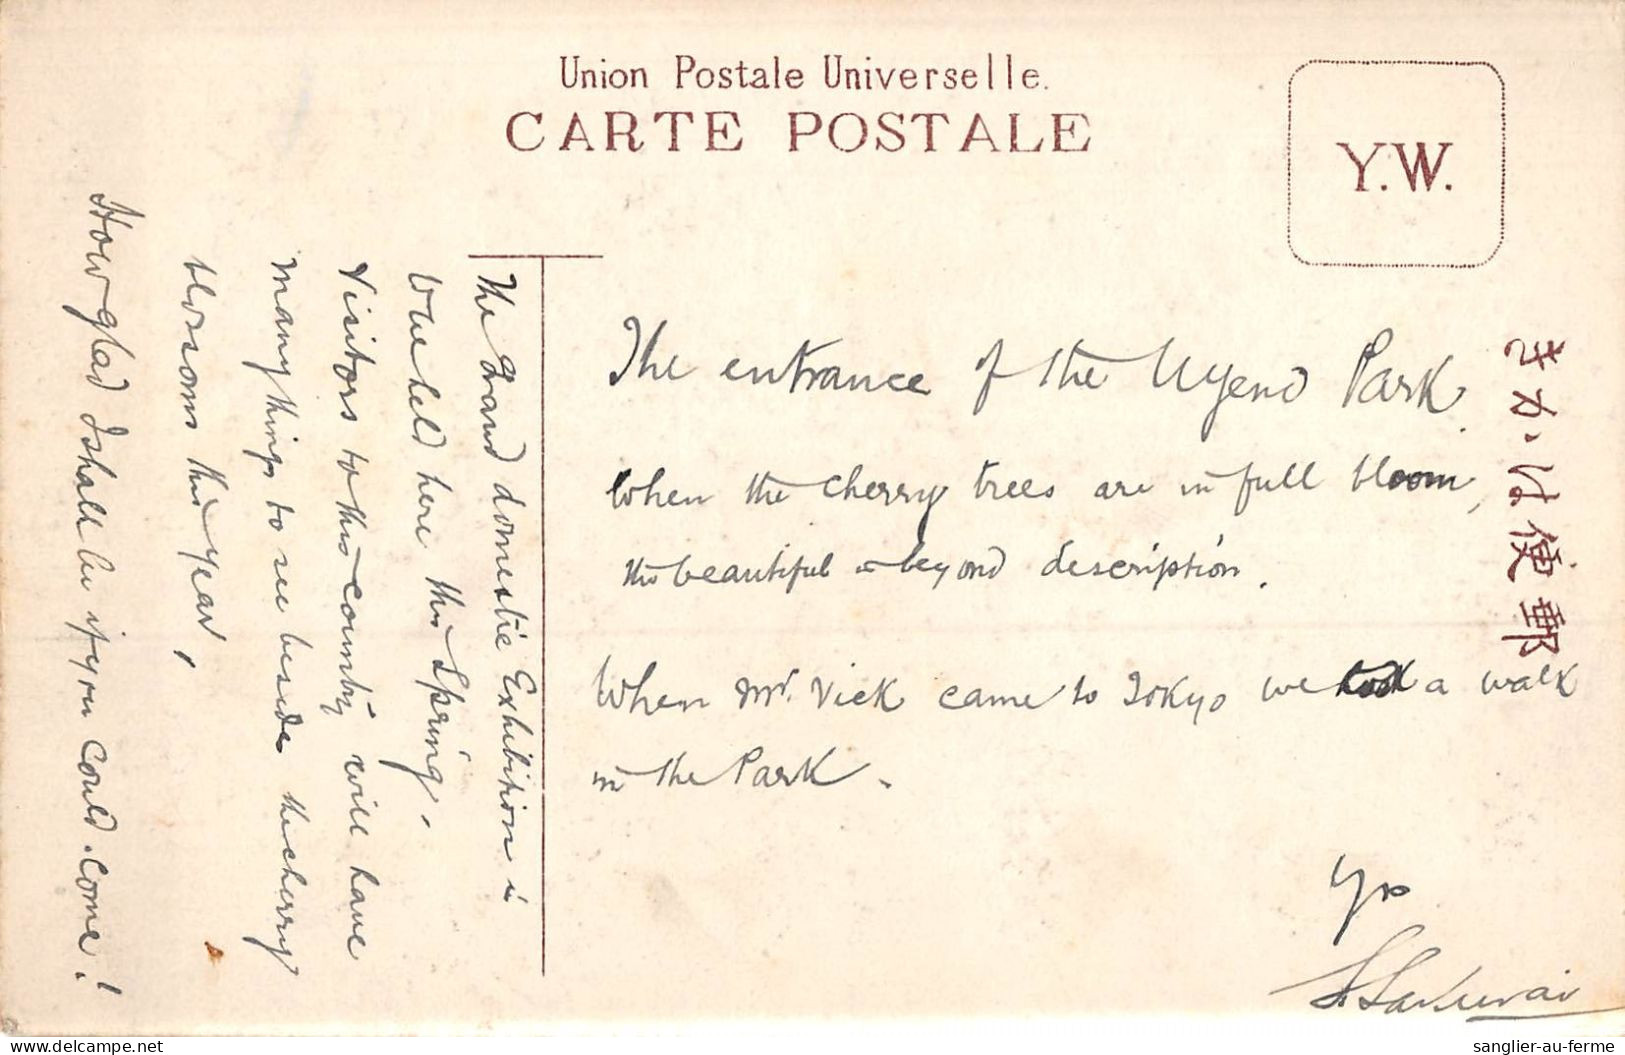 Union Postale Universelle.
CARTE POSTALE
Y.W.
きかは便郵
The entrance of the Uyeno Park
When the cherry trees are in full bloom,
the beautiful is beyond description.
When Mr. Vick came to Tokyo we took a walk
in the Park.
Yrs
S. Sakurai
The Grand domestic Exhibition is
held here this Spring.
Visitors to this country will have
many things to see besides the cherry
blossoms this year,
How glad I shall be if you could come!
sanglier-au-ferme